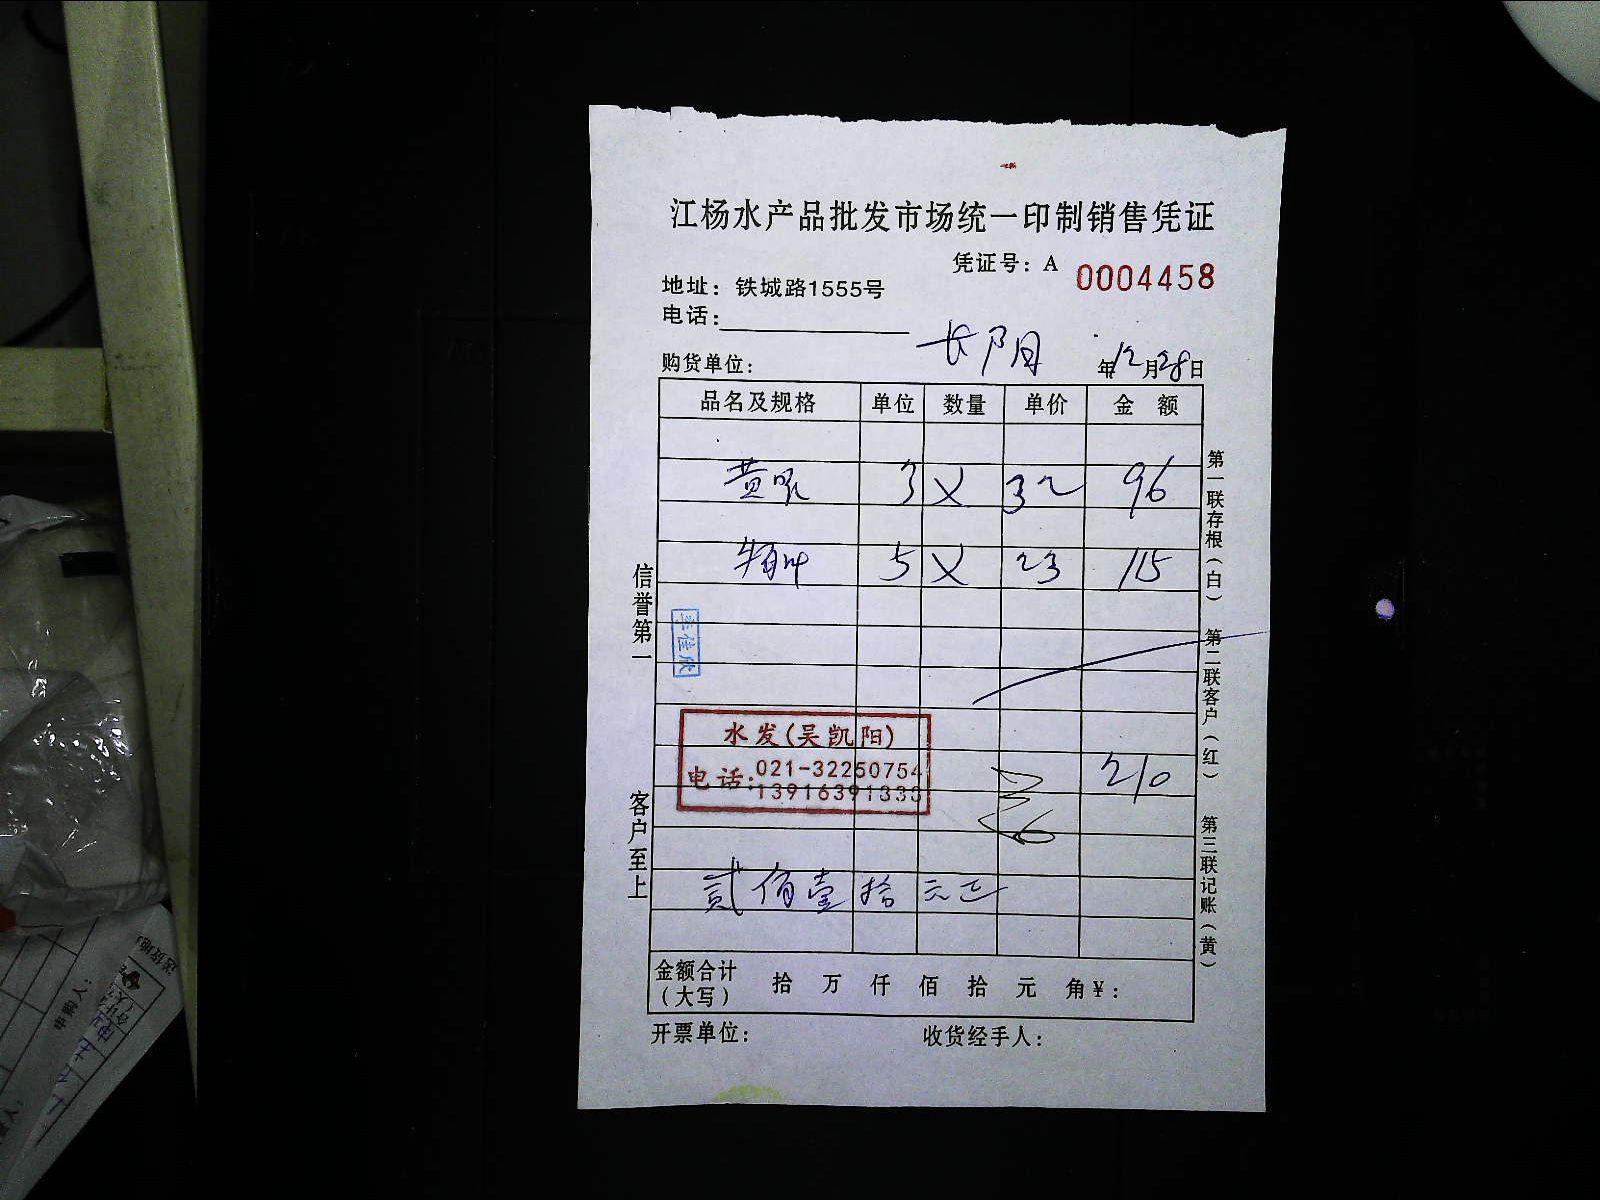 江杨水产品批发市场统一印制销售凭证
凭证号：A 0004458
地址：铁城路1555号
电话：
长阳
购货单位： 年12月28日
品名及规格 单位 数量 单价 金 额
黄 3 X 32 96
5 X 23 115
李佳欣
水发(吴凯阳)
电话:021-32250754
13916391333
210
贰佰壹拾元正
金额合计
（大写） 拾 万 仟 佰 拾 元 角 ¥：
开票单位： 收货经手人：
信誉第一
客户至上
第一联存根（白）
第二联客户（红）
第三联记账（黄）
申购人：
送货地